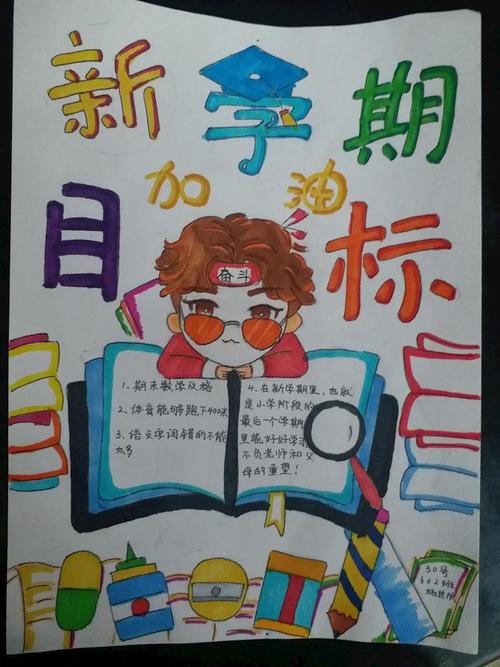 新学期
加油
目标
奋斗
1. 期末数学及格
2. 体育能够跑下400米
3. 语文字词错的不能
太多
4. 在新学期里，也就
是小学阶段的
最后一个学期
里能好好学习
不负老师和父
母的重望！
30号
602班